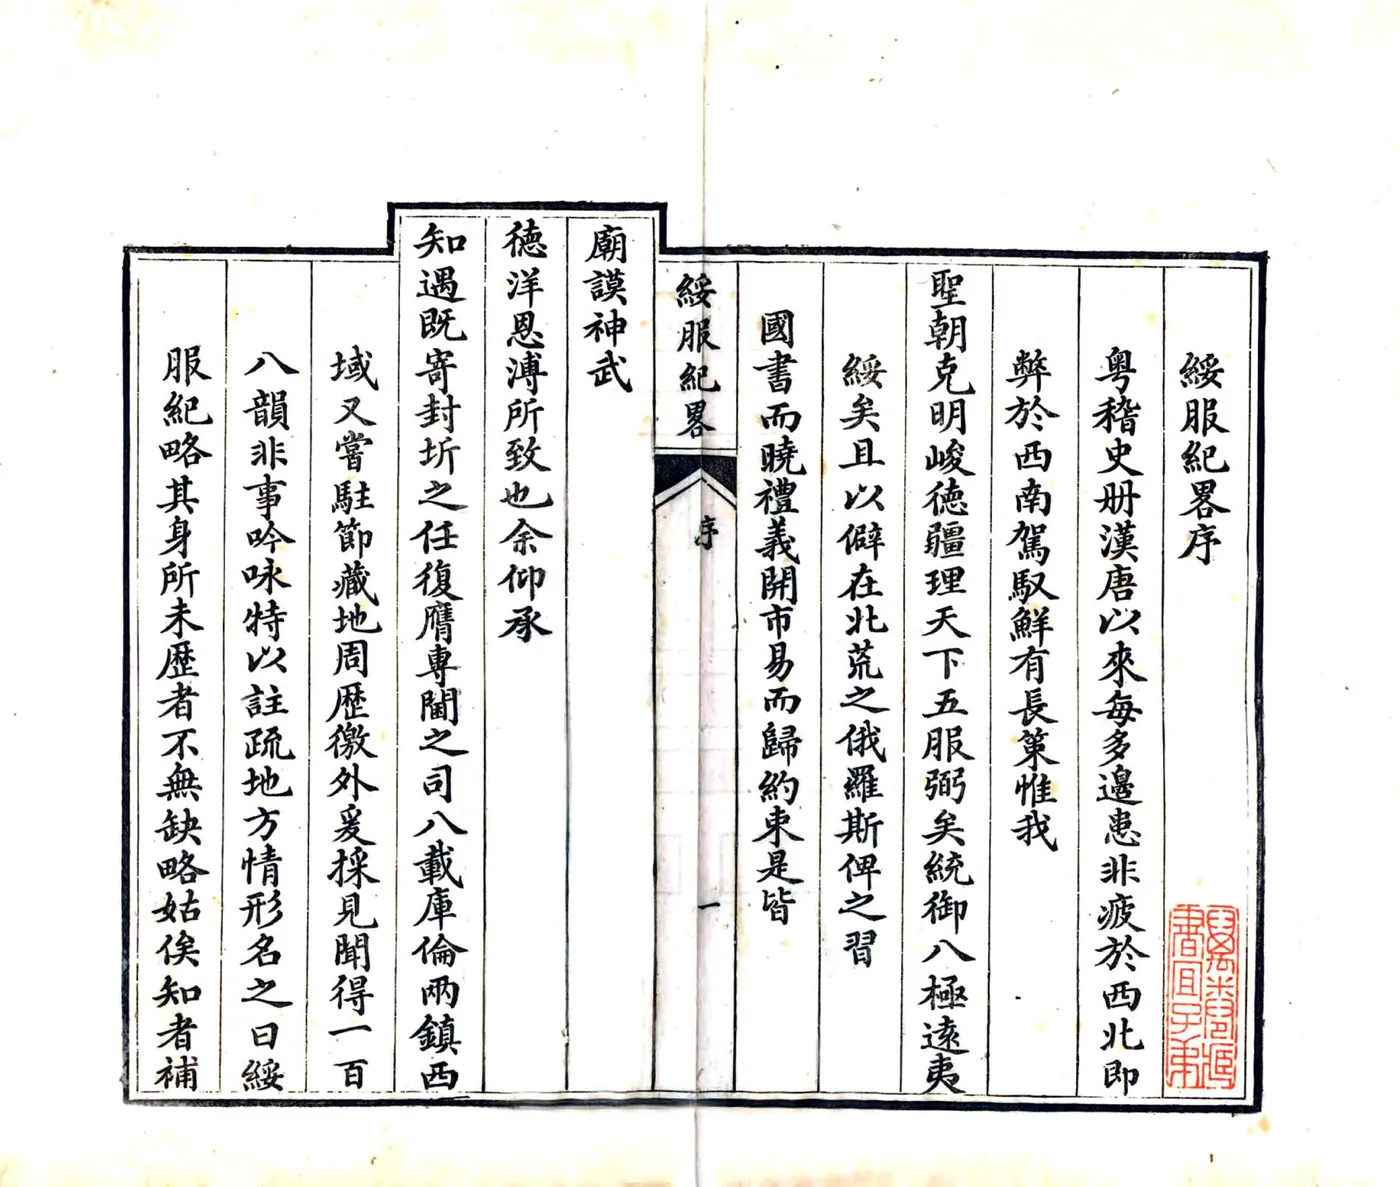 綏服紀畧序
粤稽史册漢唐以來每多邊患非疲於西北即
弊於西南駕馭鮮有長策惟我
聖朝克明峻德疆理天下五服弼矣統御八極遠夷
綏矣且以僻在北荒之俄羅斯俾之習
國書而曉禮義開市易而歸約束是皆
綏服紀畧
序
一
廟謨神武
德洋恩溥所致也余仰承
知遇既寄封圻之任復膺專閫之司八載庫倫兩鎮西
域又嘗駐節藏地周歷徼外爰採見聞得一百
八韻非事吟咏特以註疏地方情形名之曰綏
服紀略其身所未歷者不無缺略姑俟知者補